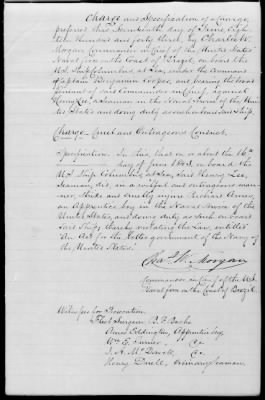 Charge and Specification of a Charge,
preferred this Seventeenth day of June Eigh-
teen hundred and forty three, by Charles W.
Morgan Commander in Chief of the United States
Naval force on the Coast of Brazil, on board the
U.S. Ship Columbus at Sea, under the command
of Captain Benjamin Cooper, and bearing the broad
Pennant of said Commander in Chief, against
Henry Lee, a Seaman in the Naval Service of the Uni-
ted States, and doing duty as such on board said Ship.
Charge. Cruel and Outrageous Conduct.
Specification. In this, that on or about the 16th
day of June 1843, on board the
U.S. Ship Columbus at Sea, said Henry Lee,
Seaman, did, in a wilful and outrageous man-
ner, strike and cruelly injure Richard
an Apprentice boy in the Naval Service of the
United States, and doing duty as such on board
said Ship, thereby violating the Law, entitled
"An Act for the better government of the Navy of
the United States."
Chas. W. Morgan
Commander in Chief of the U.S.
Naval force on the Coast of Brazil.
Witnesses for Prosecution.
Fleet Surgeon B. F. Bache
Eddington, Apprentice boy,
Wm. E. Turner, Do
J. A. McDowell, Do
Henry Darell, Ordinary Seaman.